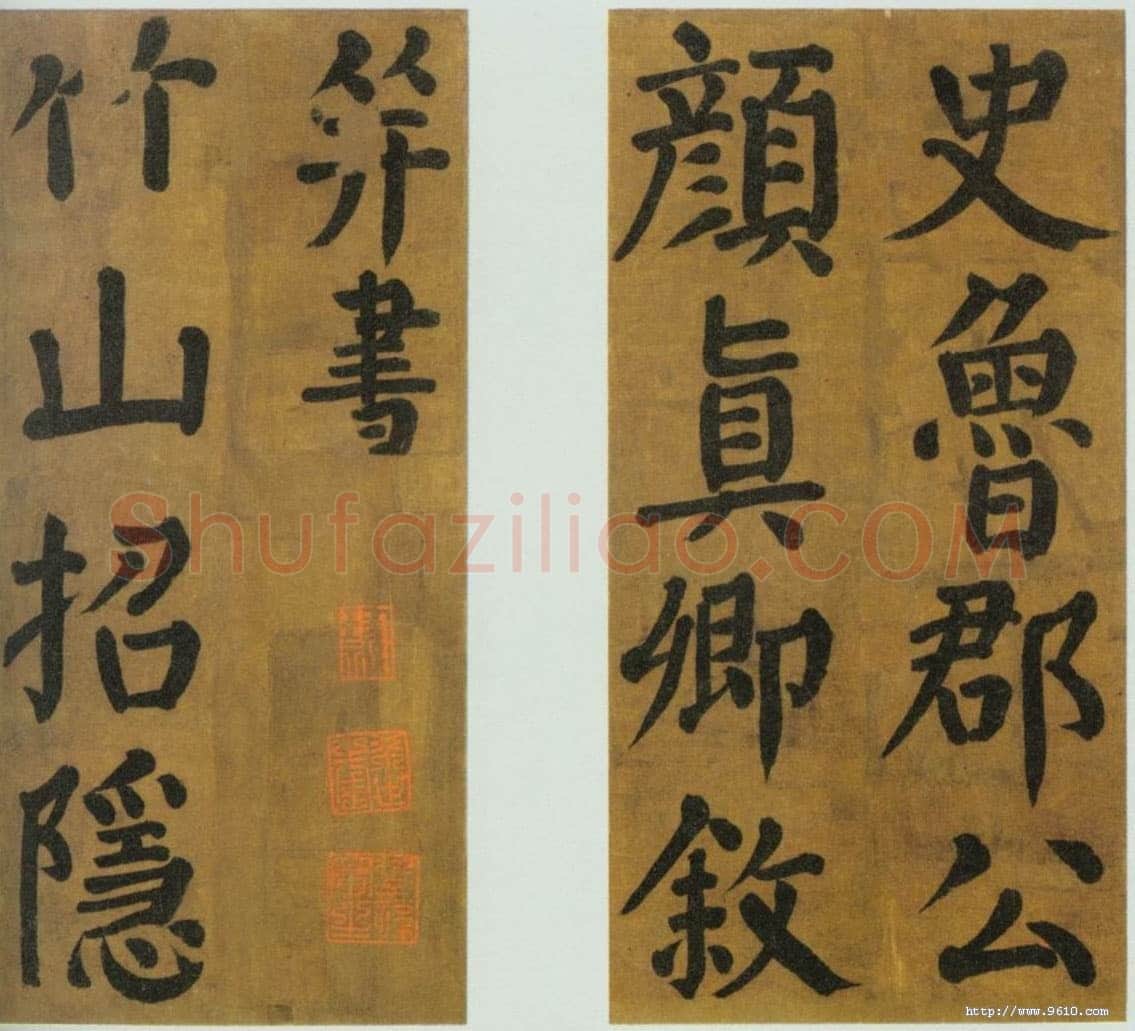 史魯郡公
顏真卿敘
筭書
竹山招隱
Shufaziliao.COM
http://www.9610.com